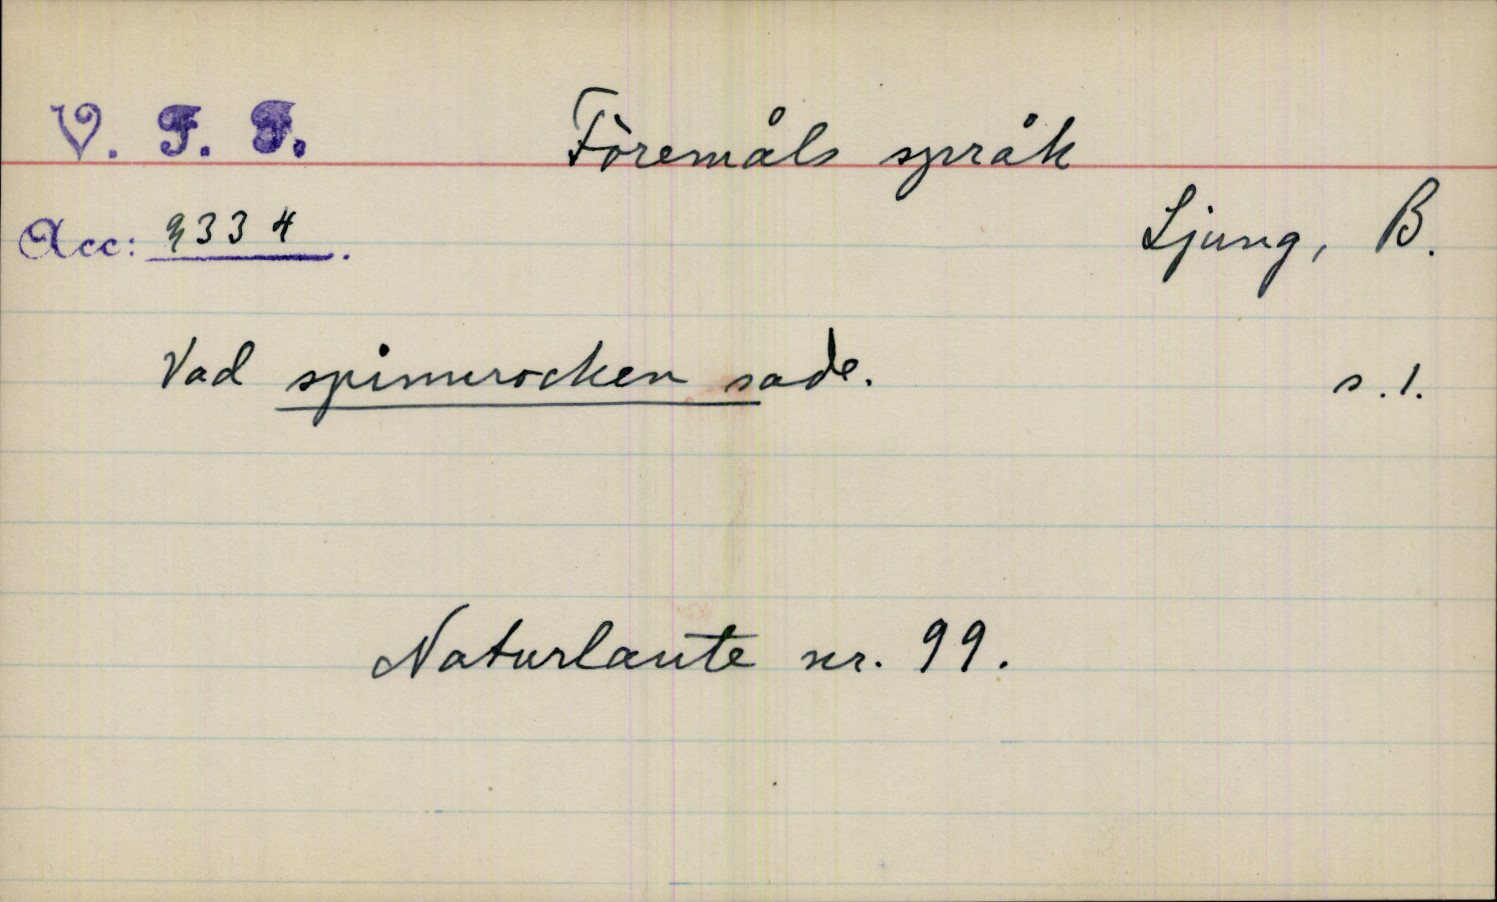 V. F. F. Föremåls språk
Acc: 3334. Ljung, B.
Vad spinnrocken sade. s. 1.
Naturlaute nr. 99.